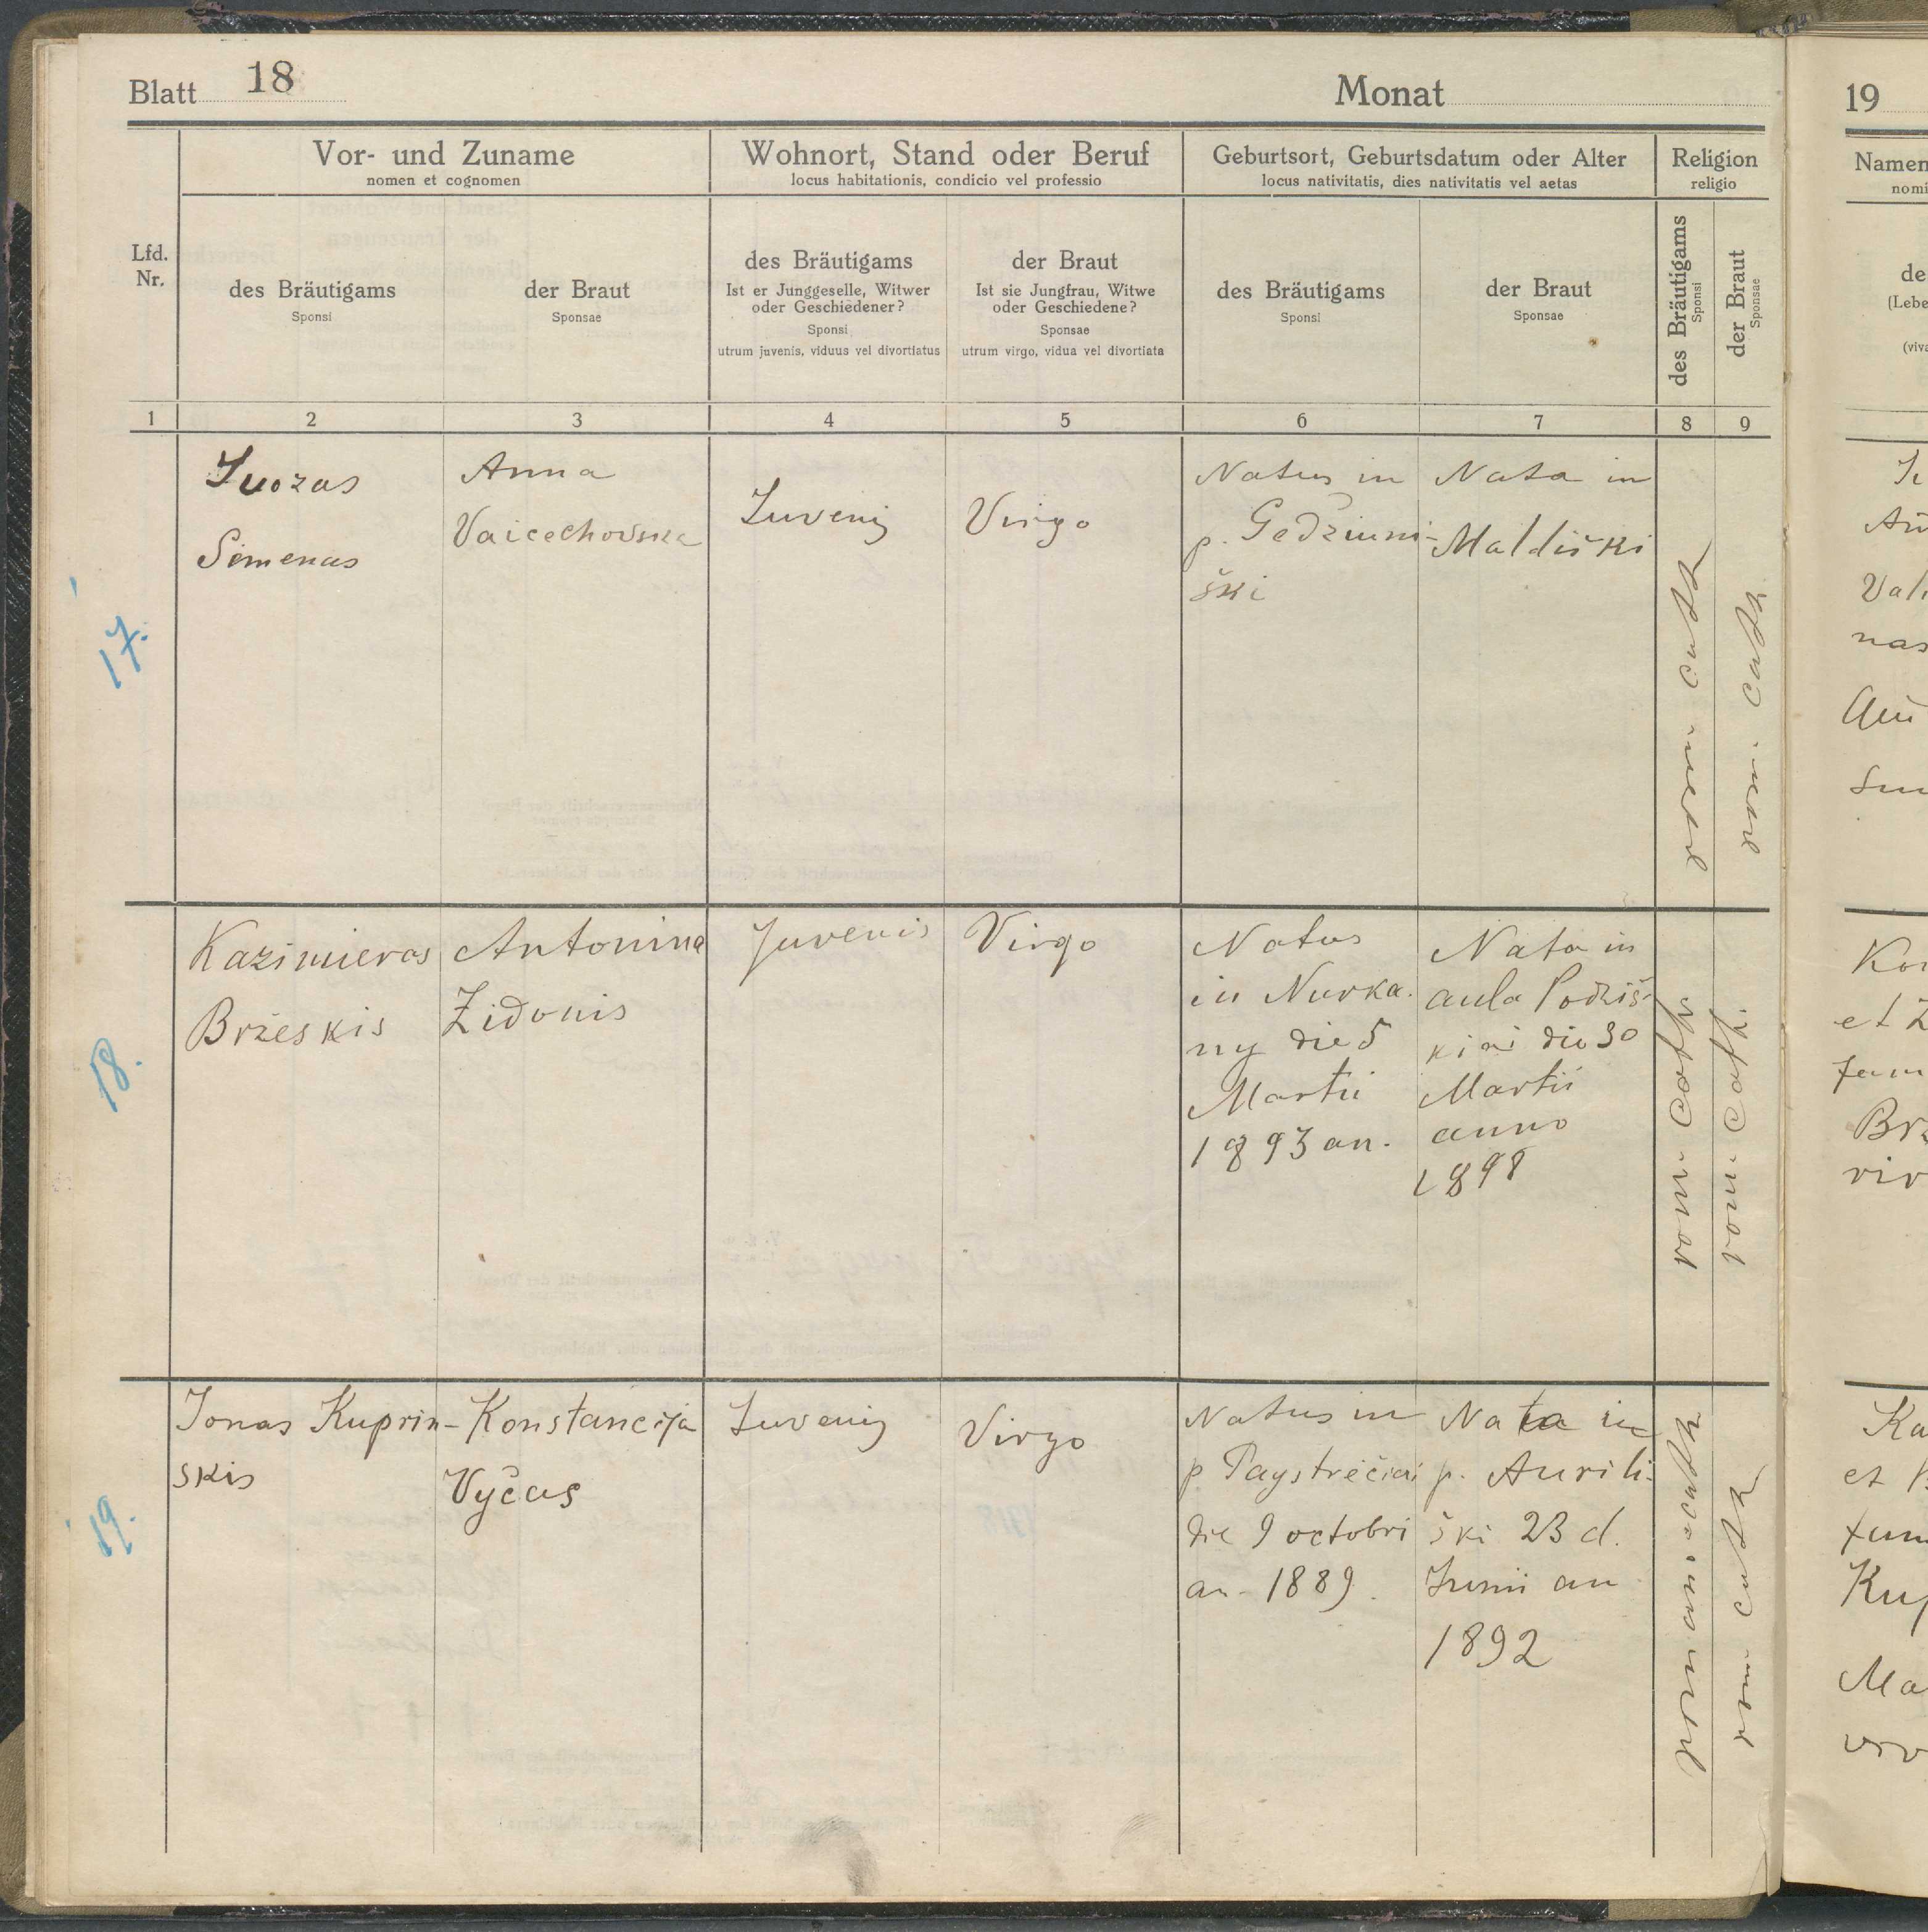 Blatt 18
Monat
Vor- und Zuname
nomen et cognomen
Wohnort, Stand oder Beruf
locus habitationis, condicio vel professio
Geburtsort, Geburtsdatum oder Alter
locus nativitatis, dies nativitatis vel aetas
Religion
religio
Lfd.
Nr.
des Bräutigams
Sponsi
der Braut
Sponsae
des Bräutigams
Ist er Junggeselle, Witwer
oder Geschiedener?
Sponsi
utrum juvenis, viduus vel divortiatus
der Braut
Ist sie Jungfrau, Witwe
oder Geschiedene?
Sponsae
utrum virgo, vidua vel divortiata
des Bräutigams
Sponsi
der Braut
Sponsae
des Bräutigams
Sponsi
der Braut
Sponsae
1 2 3 4 5 6 7 8 9
17.
Juozas
Simenas
Anna
Vaicechovska
Juvenis
Virgo
Natus in
p. Gedziuni-
ški
Nata in
Maldiški
rom cath
rom. cath.
18.
Kazimieras
Brżeskis
Antonina
Židonis
Juvenis
Virgo
Natus
in Nurka.
ny die 5
Martii
1893 an.
Nata in
aula Podziš-
kiai die 30
Martii
anno
1898
rom. cath.
rom. cath.
19.
Jonas Kuprin-
skis
Konstancija
Vyčas
Juvenis
Virgo
Natus in
p Paystrečiai
die 9 octobri
an. 1889.
Nata in
p. Aurili-
ški 23 d.
Junii an
1892
roman. cath
rom cath
19
Namen
nomi
de
(Lebe
(viva
Au
Vali
nas
Kor
et Z
Brz
vir
Ka
Kup
Ma